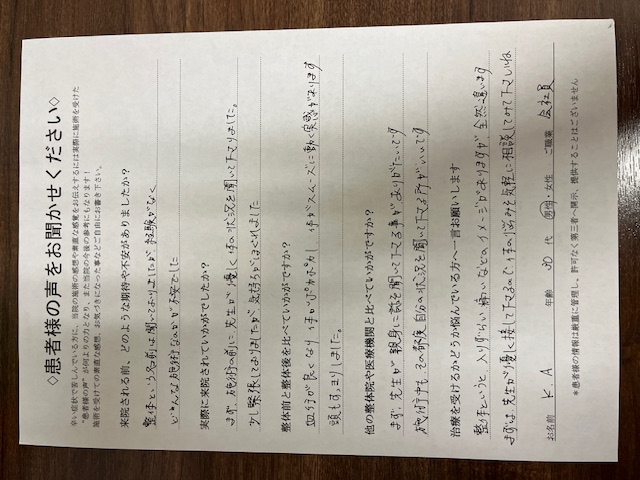 ◇患者様の声をお聞かせください◇
辛い症状で苦しんでいる方に、当院の施術の感想や素直な感覚をお伝えするには実際に施術を受けた
"患者様の声"が何よりの力となり、また当院の今後の参考にもなります！
施術を受けての素直な感想、お気づきになった事などご自由にお書き下さい。
来院される前、どのような期待や不安がありましたか？
整体という名前は聞いておりましたが経験がなく
どんな施術なのかが不安でした
実際に来院されていかがでしたか？
まず、施術の前に先生が優しく体の状況を聞いて下さりました。
少し緊張しておりましたが気持ちがほぐれました
整体前と整体後を比べていかがですか？
血行が良くなり体がポカポカし、体がスムーズに動く実感があります
頭もすっきりしました。
他の整体院や医療機関と比べていかがですか？
まず、先生が親身に話を聞いて下さる事がありがたいです
施術中も、その都度自分の状況を聞いて下さる所がいいです
治療を受けるかどうか悩んでいる方へ一言お願いします
整体というと、入りずらい、痛いなどのイメージがありますが、全然違います
まずは先生が優しく接して下さるので、体の悩みを気軽に相談してみて下さいね
お名前 K A 年齢 30 代 男性・女性 ご職業 会社員
＊患者様の情報は厳重に管理し、許可なく第三者へ開示、提供することはございません